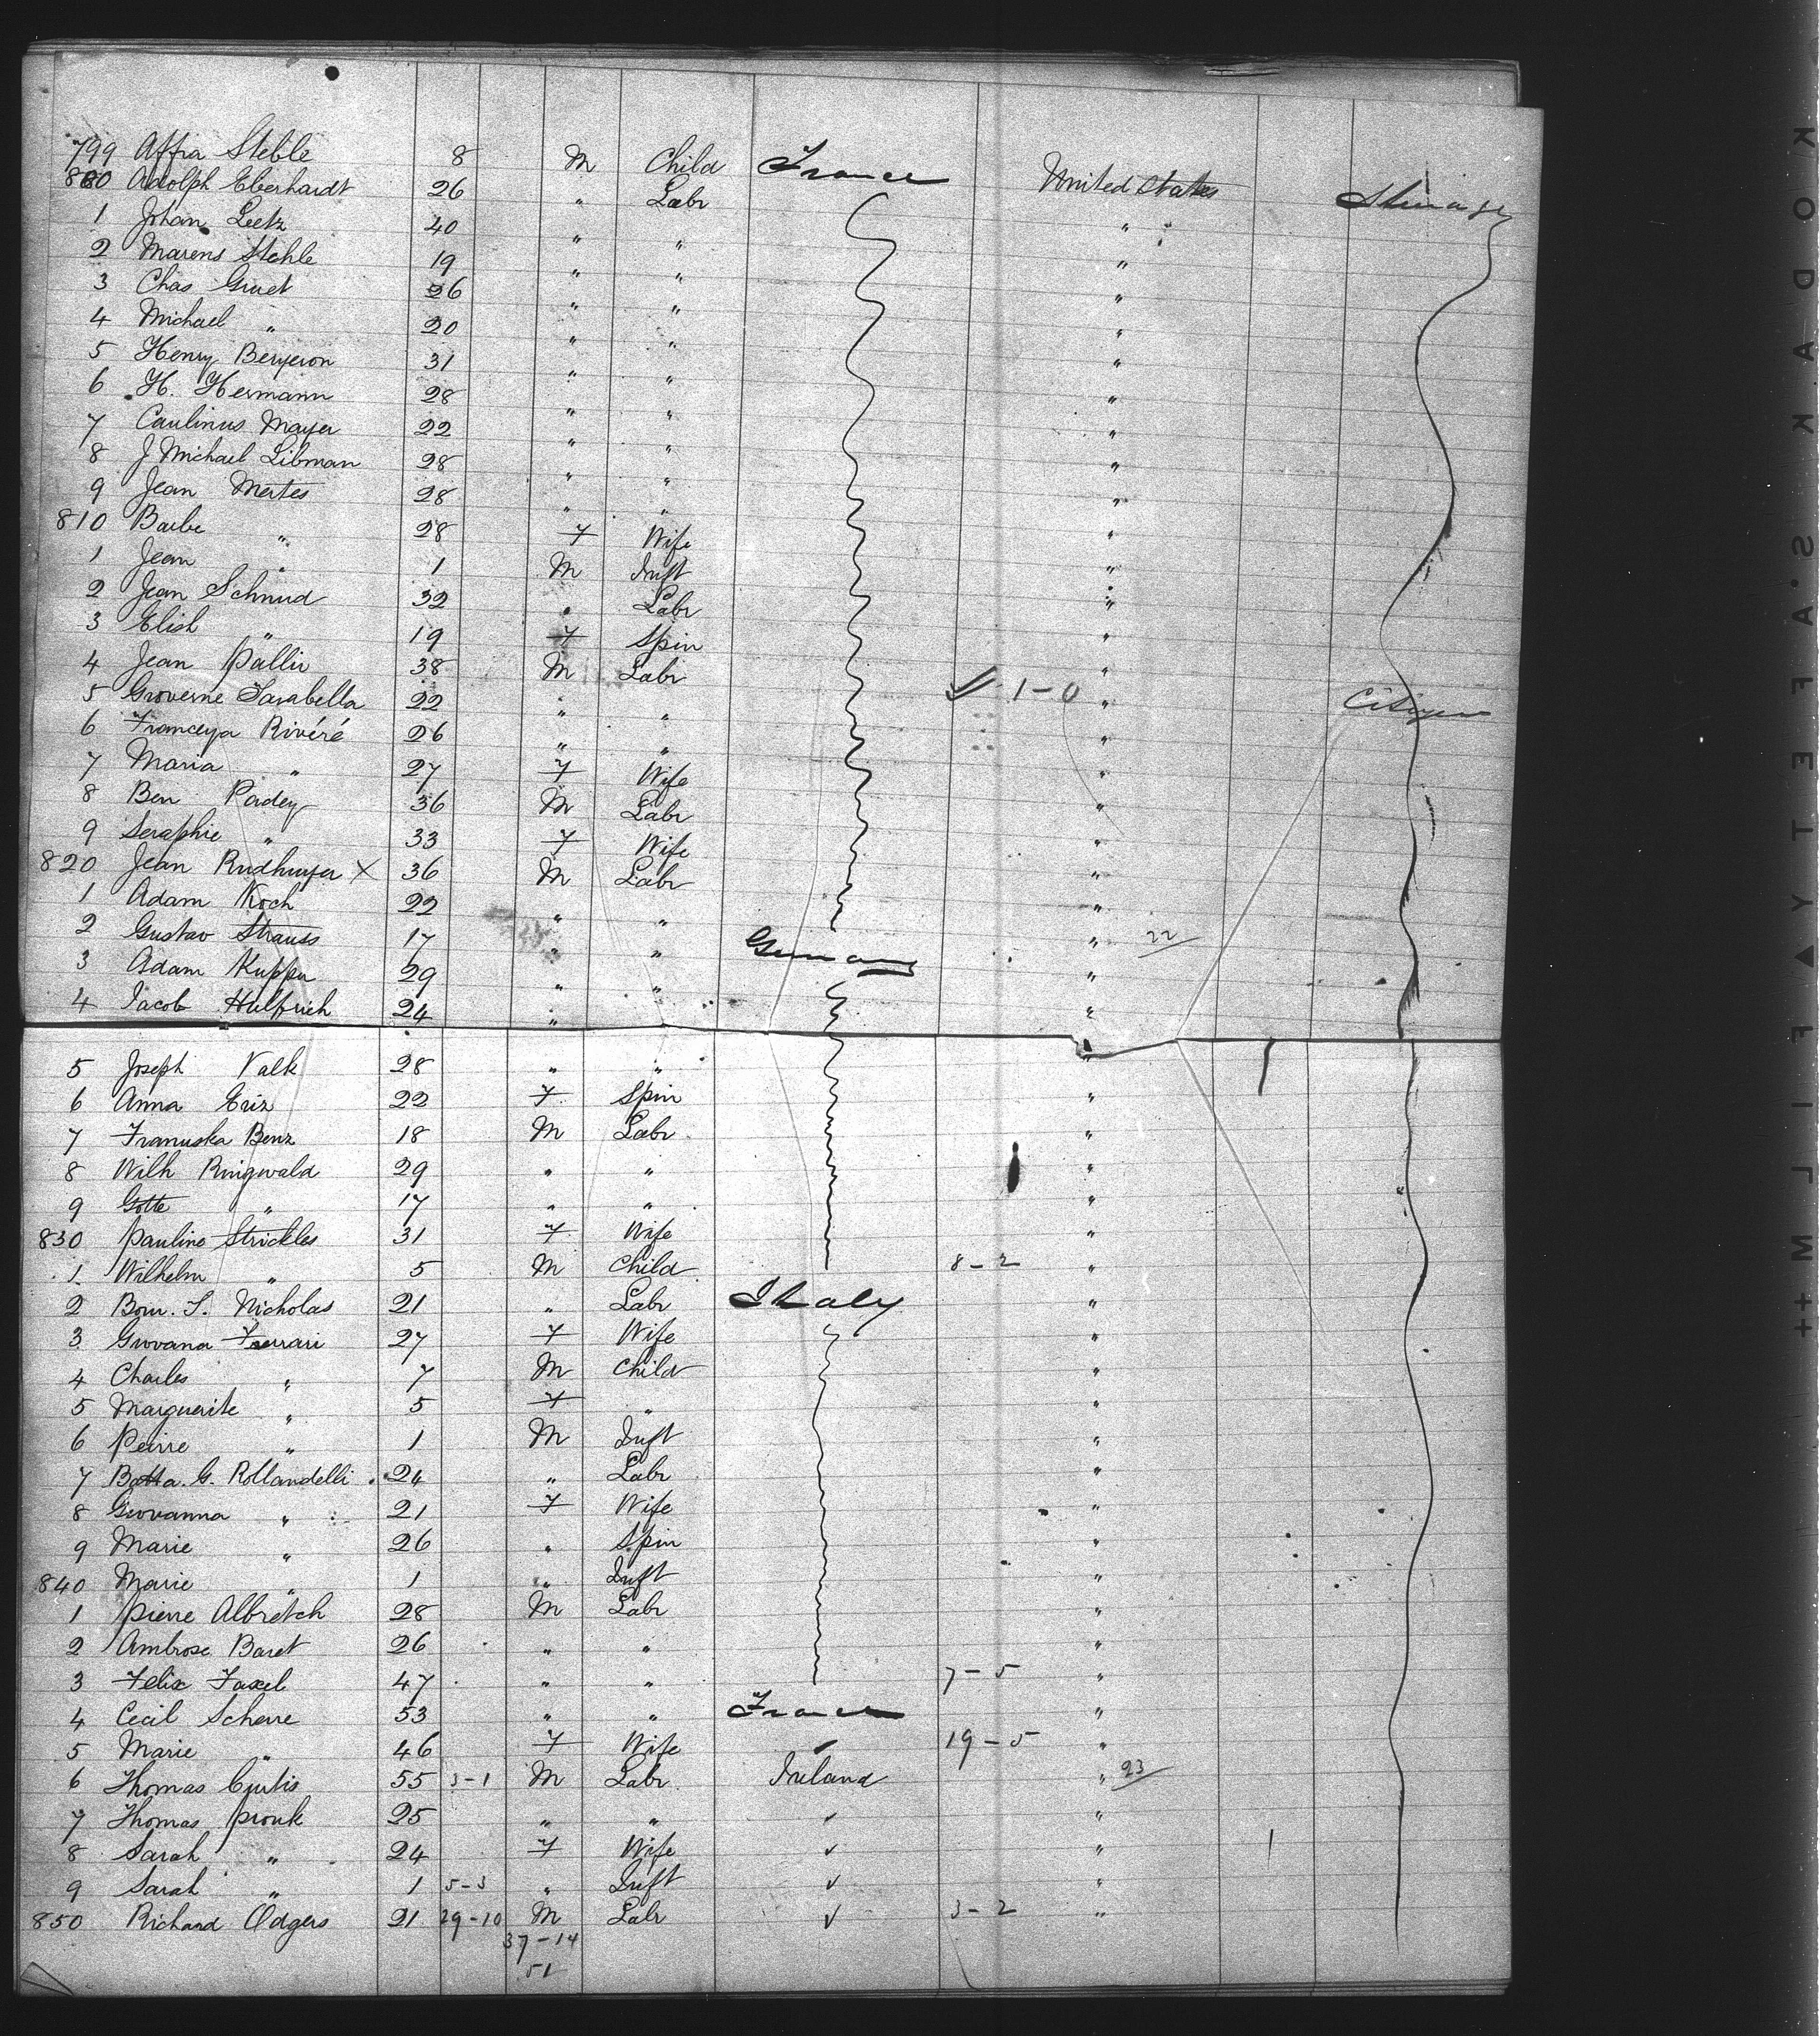 799 Affra Steble 8 M Child France United States Steerage
800 Adolph Eberhardt 26 " Labr "
1 Johan Leetz 40 " " "
2 Marens Stehle 19 " " "
3 Chas Gruet 26 " " "
4 Michael " 20 " " "
5 Henry Bergeron 31 " " "
6 H. Hermann 28 " " "
7 Caulinus Mayer 22 " " "
8 J Michael Libman 28 " " "
9 Jean Mertes 28 " " "
810 Barbe " 28 F Wife "
1 Jean " 1 M Inft "
2 Jean Schmid 32 " Labr "
3 Elish " 19 F Spin "
4 Jean Pallir 38 M Labr "
5 Groverne Sarabella 22 " " 1-0 " Citizen
6 Rivéré 26 " " "
7 Maria " 27 F Wife "
8 Ben Padey 36 M Labr "
9 Seraphie " 33 F Wife "
820 Jean X 36 M Labr "
1 Adam Koch 22 " " "
2 Gustav Strauss 17 " " Germany " 22
3 Adam Kuppu 29 " " "
4 Jacob Hulfrich 24 " "
5 Joseph Valk 28 " " "
6 Anna Eriz 22 F Spin "
7 Franuska Benz 18 M Labr "
8 Wilh Ringwald 29 " " "
9 Gotte " 17 " " "
830 Pauline Strickles 31 F Wife "
1 Wilhelm " 5 M Child 8-2 "
2 Bom. S. Nicholas 21 " Labr Italy "
3 Giovana Ferrari 27 F Wife "
4 Charles " 7 M Child "
5 Marguerite " 5 F " "
6 Peirre " 1 M Inft "
7 Batta. G. Rollandelli 24 " Labr "
8 Giovanna " 21 F Wife "
9 Marie " 26 " Spin "
840 Marie " 1 " Inft "
1 Pierre Albretch 28 M Labr "
2 Ambrose Baret 26 " " "
3 Felix Faxel 47 " " 7-5 "
4 Cecil Scherre 53 " " France "
5 Marie " 46 F Wife 19-5 "
6 Thomas Curtis 55 3-1 M Labr Ireland " 23
7 Thomas Prouk 25 " " "
8 Sarah " 24 F Wife " 1
9 Sarah " 1 5-3 " Inft "
850 Richard Odgers 21 29-10 M Labr 3-2 "
37-14
51
KODAK S.AFETY FILM